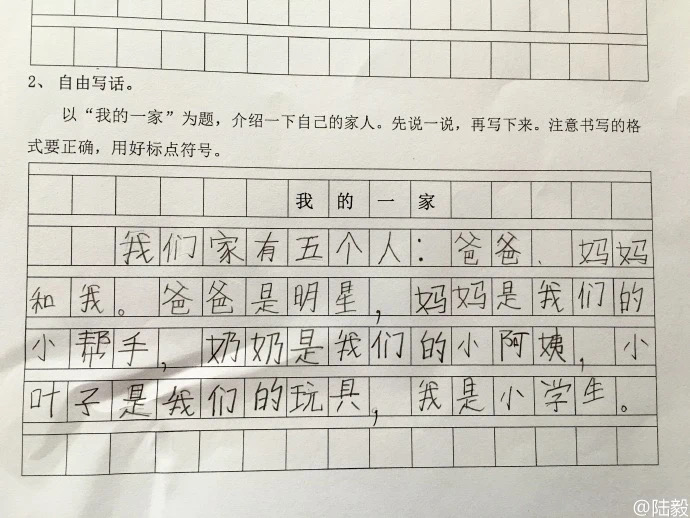 2、自由写话。
以“我的一家”为题，介绍一下自己的家人。先说一说，再写下来。注意书写的格
式要正确，用好标点符号。
我的一家
我们家有五个人：爸爸、妈妈
和我。爸爸是明星，妈妈是我们的
小帮手，奶奶是我们的小阿姨，小
叶子是我们的玩具，我是小学生。
@陆毅